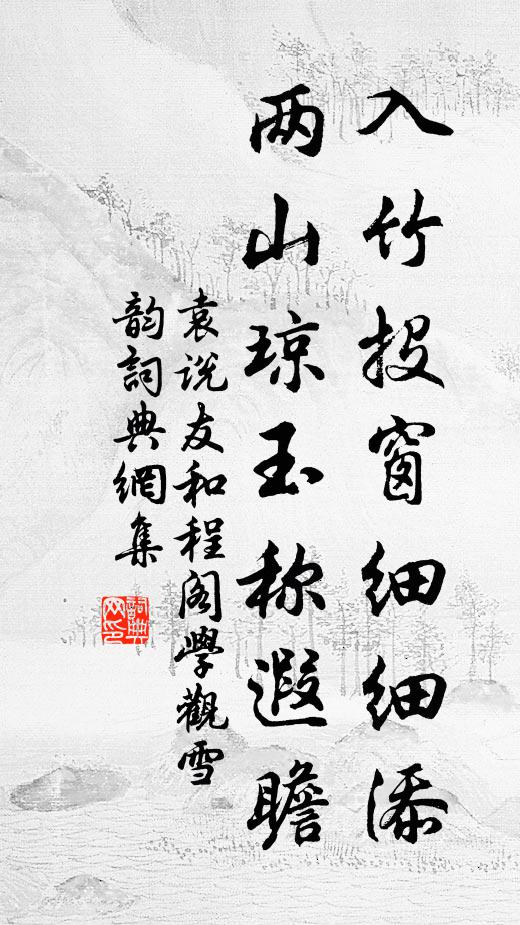 入竹投窗细细添
两山琼玉称遐瞻
袁说友和程阁學觀雪
韵詞典網集
詞典
网印